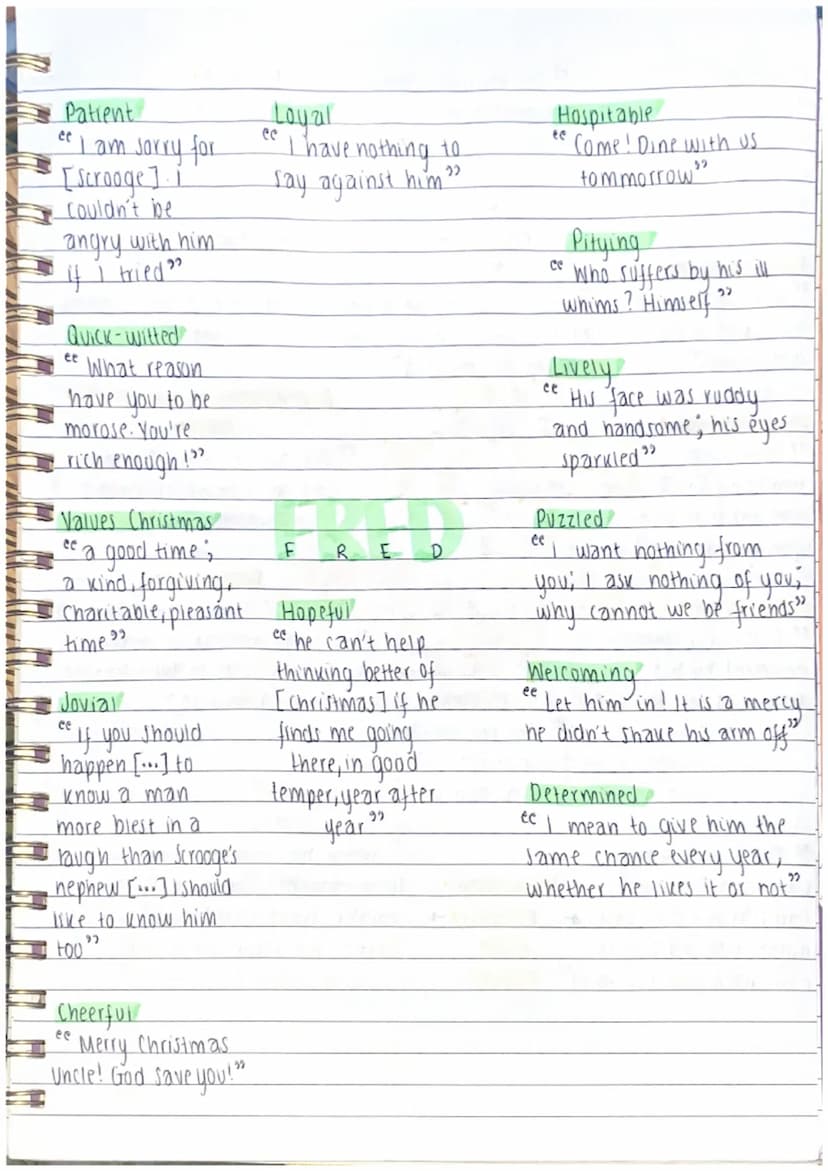 Patient
“I am sorry for
[Scrooge]. I
couldn't be
angry with him
if I tried”
Quick-witted
“What reason
have you to be
morose. You're
rich enough!”
Values Christmas
“a good time;
a kind, forgiving,
charitable, pleasant
time”
Jovial
“If you should
happen [...] to
know a man
more blest in a
laugh than Scrooge's
nephew [...] I should
like to know him
too”
Cheerful
“Merry Christmas
Uncle! God save you!”
Loyal
“I have nothing to
say against him”
FRED
FRED
Hopeful
“he can't help
thinking better of
[Christmas] if he
finds me going
there, in good
temper, year after
year”
Hospitable
“Come! Dine with us
tommorrow”
Pitying
“Who suffers by his ill
whims? Himself”
Lively
“His face was ruddy
and handsome; his eyes
sparkled”
Puzzled
“I want nothing from
you; I ask nothing of you;
why cannot we be friends”
Welcoming
“Let him in! It is a mercy
he didn't shake his arm off”
Determined
“I mean to give him the
same chance every year,
whether he likes it or not”